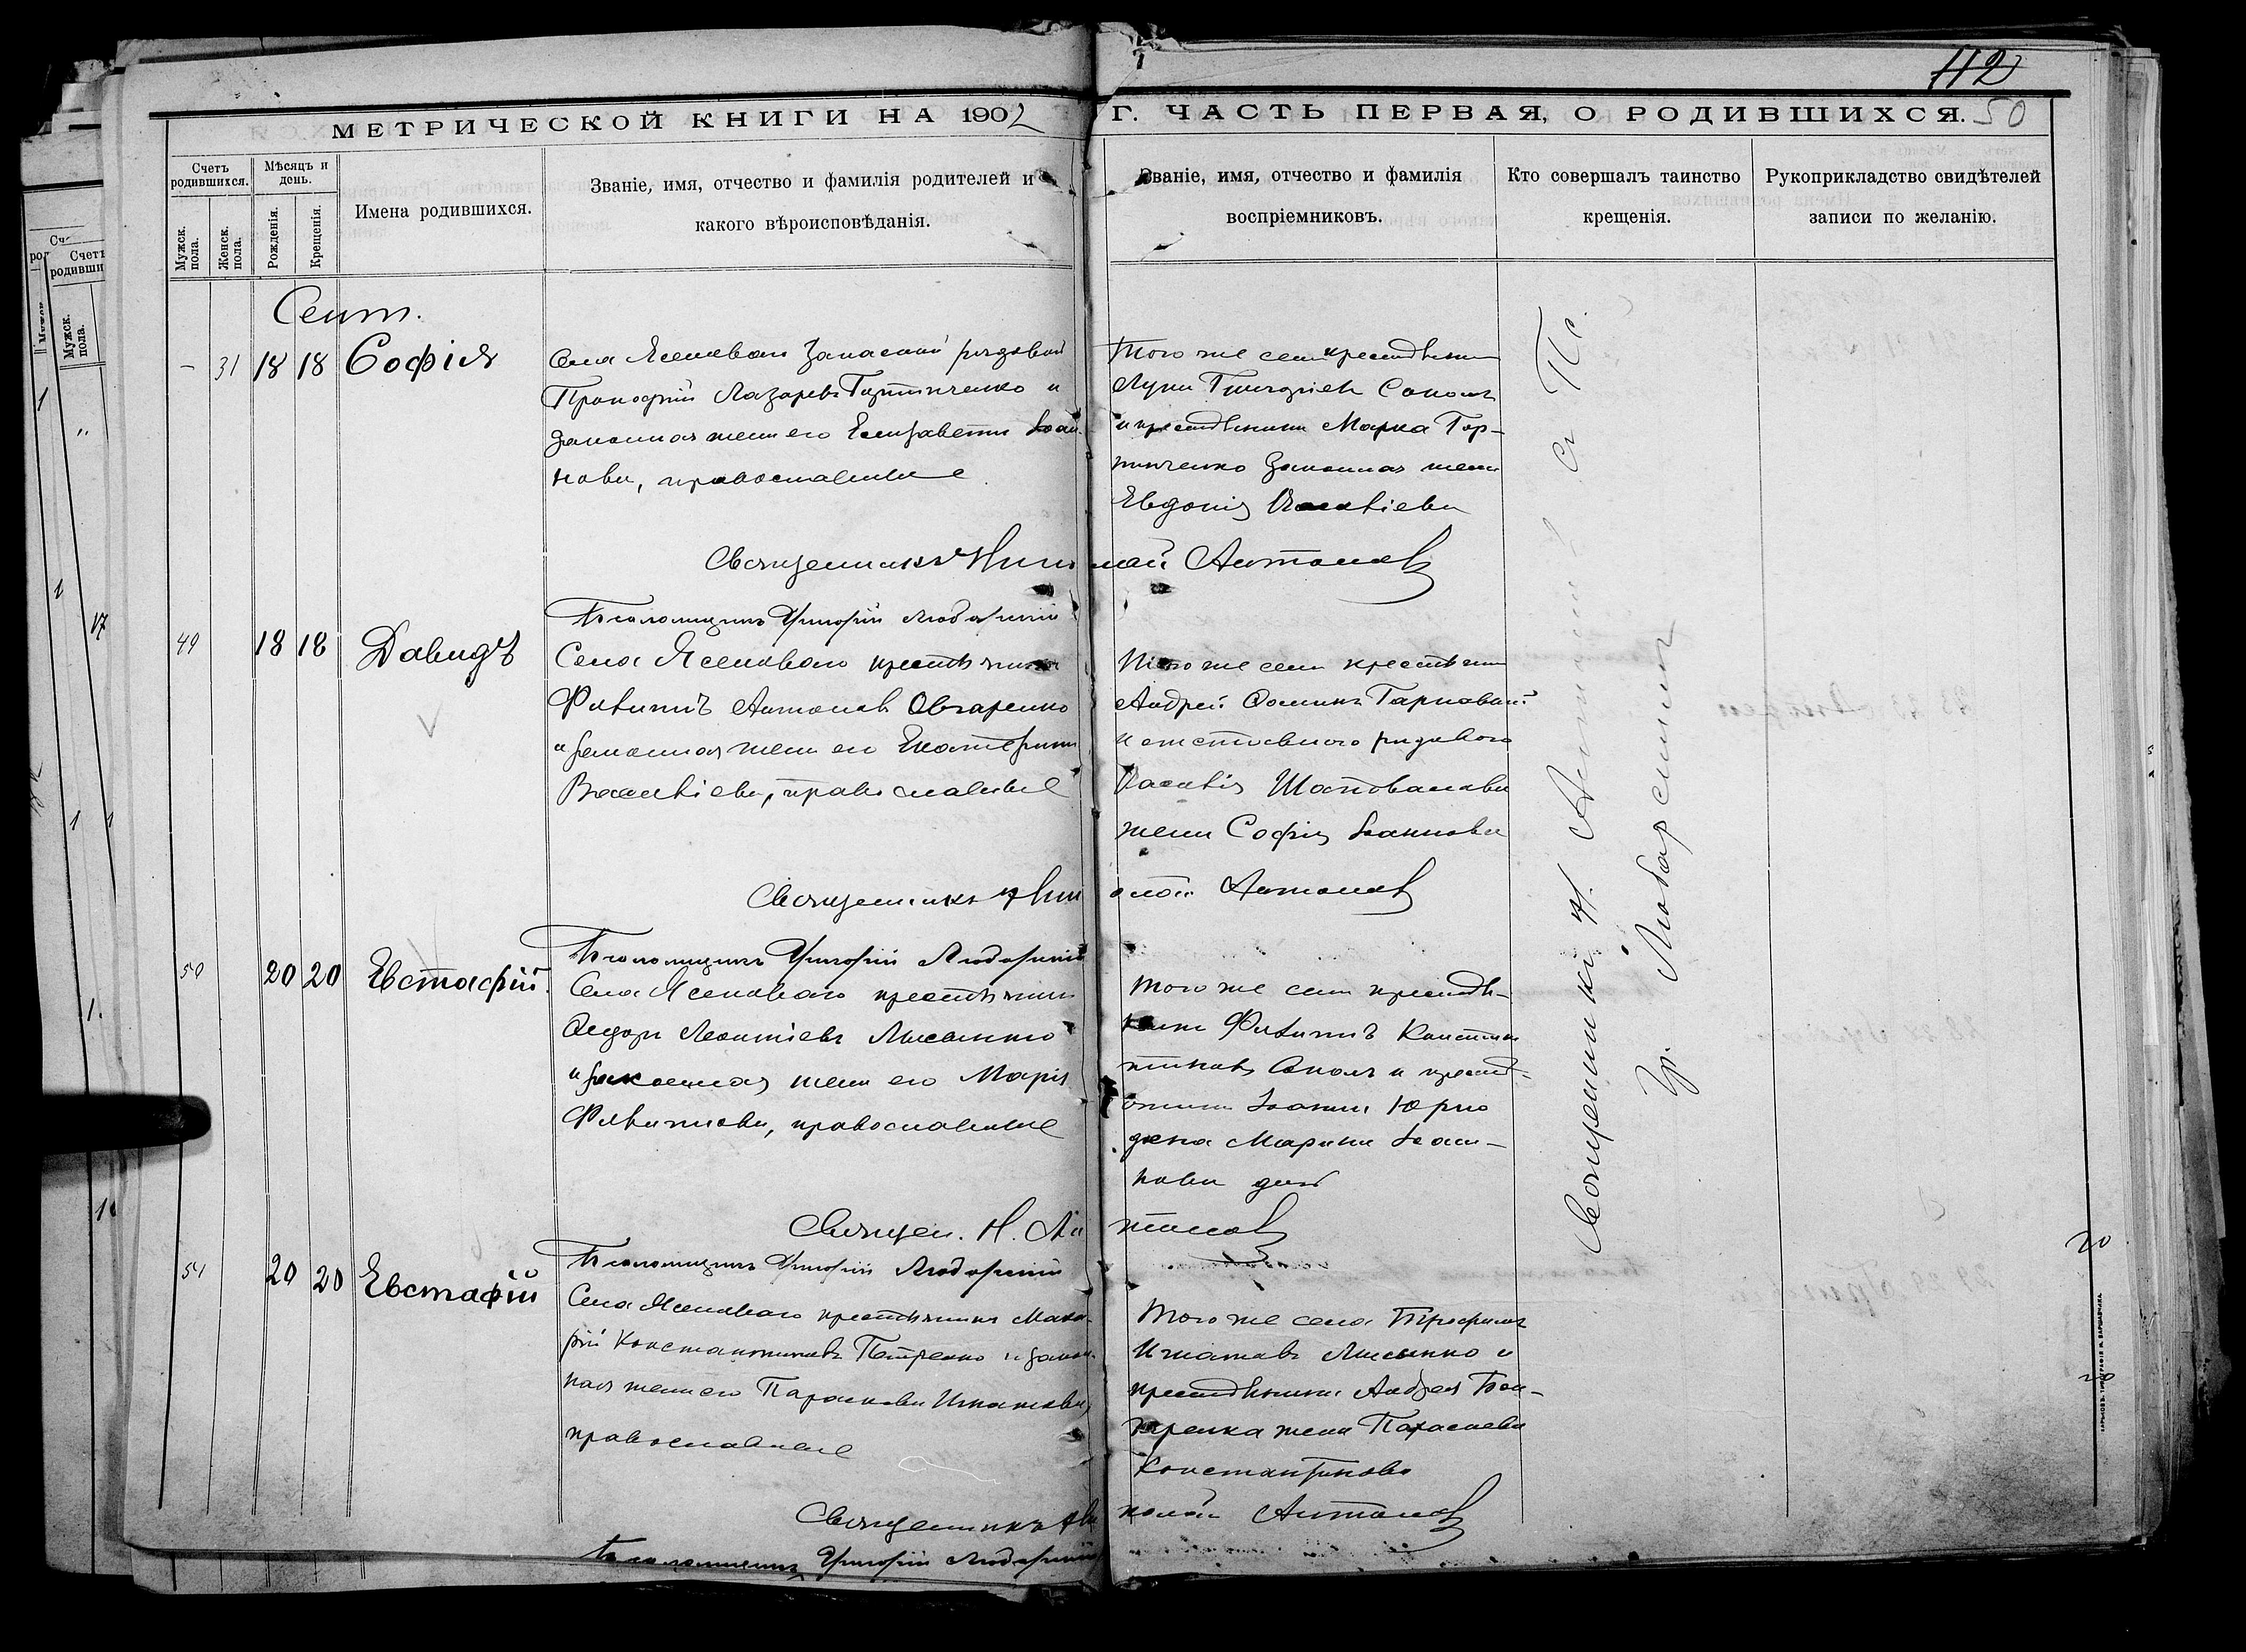 112
МЕТРИЧЕСКОЙ КНИГИ НА 1902
Г. ЧАСТЬ ПЕРВАЯ, О РОДИВШИХСЯ. 50
Счетъ родившихся.
Мужск. пола.
Женск. пола.
Мѣсяцъ и день.
Рожденія.
Крещенія.
Имена родившихся.
Званіе, имя, отчество и фамилія родителей и
какого вѣроисповѣданія.
Званіе, имя, отчество и фамилія
воспріемниковъ.
Кто совершалъ таинство
крещенія.
Рукоприкладство свидѣтелей
записи по желанію.
Сент.
– 31 18 18 Софія
Села Ясеноваго запасной рядовой
Прокофій Лазаревъ и
законная жена его Елисавета Іоан-
нова, православные
Того же села крестьянинъ
Луки Соколъ
и крестьянина Марка Гор-
пинченко законная жена
Евдокія
Священникъ Николай Антоновъ
Псаломщикъ Григорій Любарскій
49 18 18 Давидъ
Села Ясеноваго крестьянинъ
Филиппъ Антоновъ Овчаренко
и законная жена его Екатерина
Васильева, православные
Того же села крестьянинъ
Андрей Ѳоминъ Гарковый
и отставного рядового
Василія Шаповалова
жена Софія Іоаннова
Священникъ Николай Антоновъ
Псаломщикъ Григорій Любарскій
50 20 20 Евстафій.
Села Ясеноваго крестьянинъ
Ѳедоръ Леонтіевъ Лысенко
и законная жена его Марія
Филиппова, православные
Того же села крестья-
нинъ Филиппъ Констан-
тиновъ Соколъ и крест-
янина Іоанна
Марина Іоан-
нова
Священ. Н. Антоновъ
Псаломщикъ Григорій Любарскій
51 20 20 Евстафій
Села Ясеноваго крестьянинъ Мака-
рій Константиновъ Петренко и закон-
ная жена его Параскева Игнатова,
православные
Того же села Трофимъ
Игнатовъ Лысенко и
крестьянина Андрея Бон-
даренка жена Параскева
Константинова
Священникъ Николай Антоновъ
Псаломщикъ Григорій Любарскій
Священникъ Н. Антоновъ съ Пс.
Гр. Любарскимъ
20